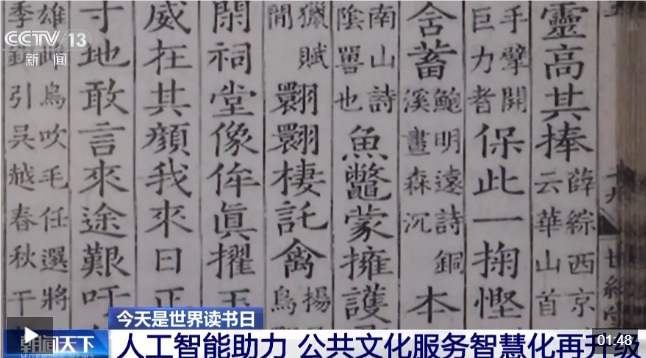 靈高其捧薛綜西京
云華山首
手擘開
巨力者
保此一掬慳
含蓄鮑明遠詩銅
溪晝森沉
本
南山詩
陰罾也
魚鼈蒙擁護
獵賦
翾翾棲託禽
揚
閑祠堂像侔眞擢玉
威在其顔我來日正
寸地敢言來途艱吁
雄
鳥吹毛任選將
季
引吳越春秋干
CCTV 13
新闻
今天是世界读书日
朝闻天下
人工智能助力 公共文化服务智慧化再升级
01:48